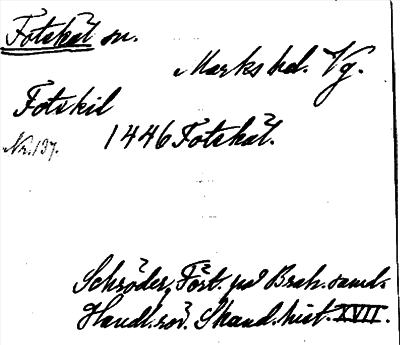 Fotskät sn.
Marks hd. Vg.
Fotskil
Nr. 137.
1446 Fotskät.
Schröder, Fört. på Brah. saml.
Handl. rör. Skand. hist. XVII.